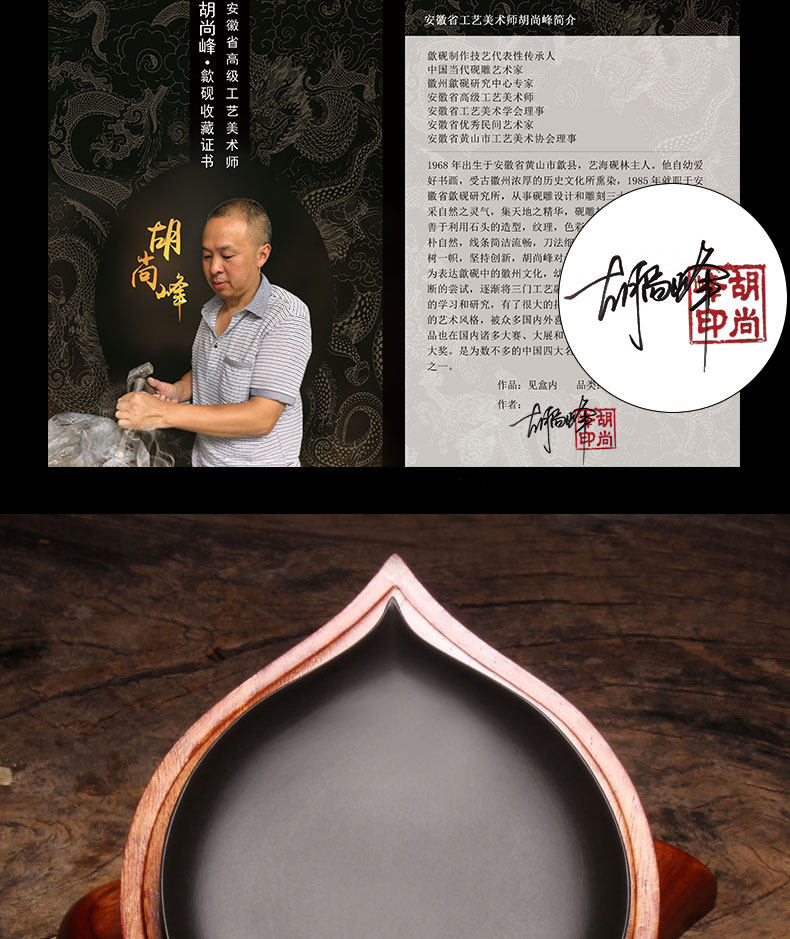 安徽省高级工艺美术师
胡尚峰·歙砚收藏证书
胡尚峰
安徽省工艺美术师胡尚峰简介
歙砚制作技艺代表性传承人
中国当代砚雕艺术家
徽州歙砚研究中心专家
安徽省高级工艺美术师
安徽省工艺美术学会理事
安徽省优秀民间艺术家
安徽省黄山市工艺美术协会理事
1968 年出生于安徽省黄山市歙县，艺海砚林主人。他自幼爱
好书画，受古徽州浓厚的历史文化所熏染，1985 年就职于安
徽省歙砚研究所，从事砚雕设计和雕刻三
采自然之灵气，集天地之精华，砚雕
善于利用石头的造型，纹理，色彩
朴自然，线条简洁流畅，刀法细
树一帜，坚持创新，胡尚峰对
为表达歙砚中的徽州文化，
断的尝试，逐渐将三门工艺
的学习和研究，有了很大的
的艺术风格，被众多国内外喜
品也在国内诸多大赛、大展和
大奖。是为数不多的中国四大名
之一。
作品：见盒内 品类
作者：
胡尚峰
胡尚峰印
胡尚峰
胡尚峰印